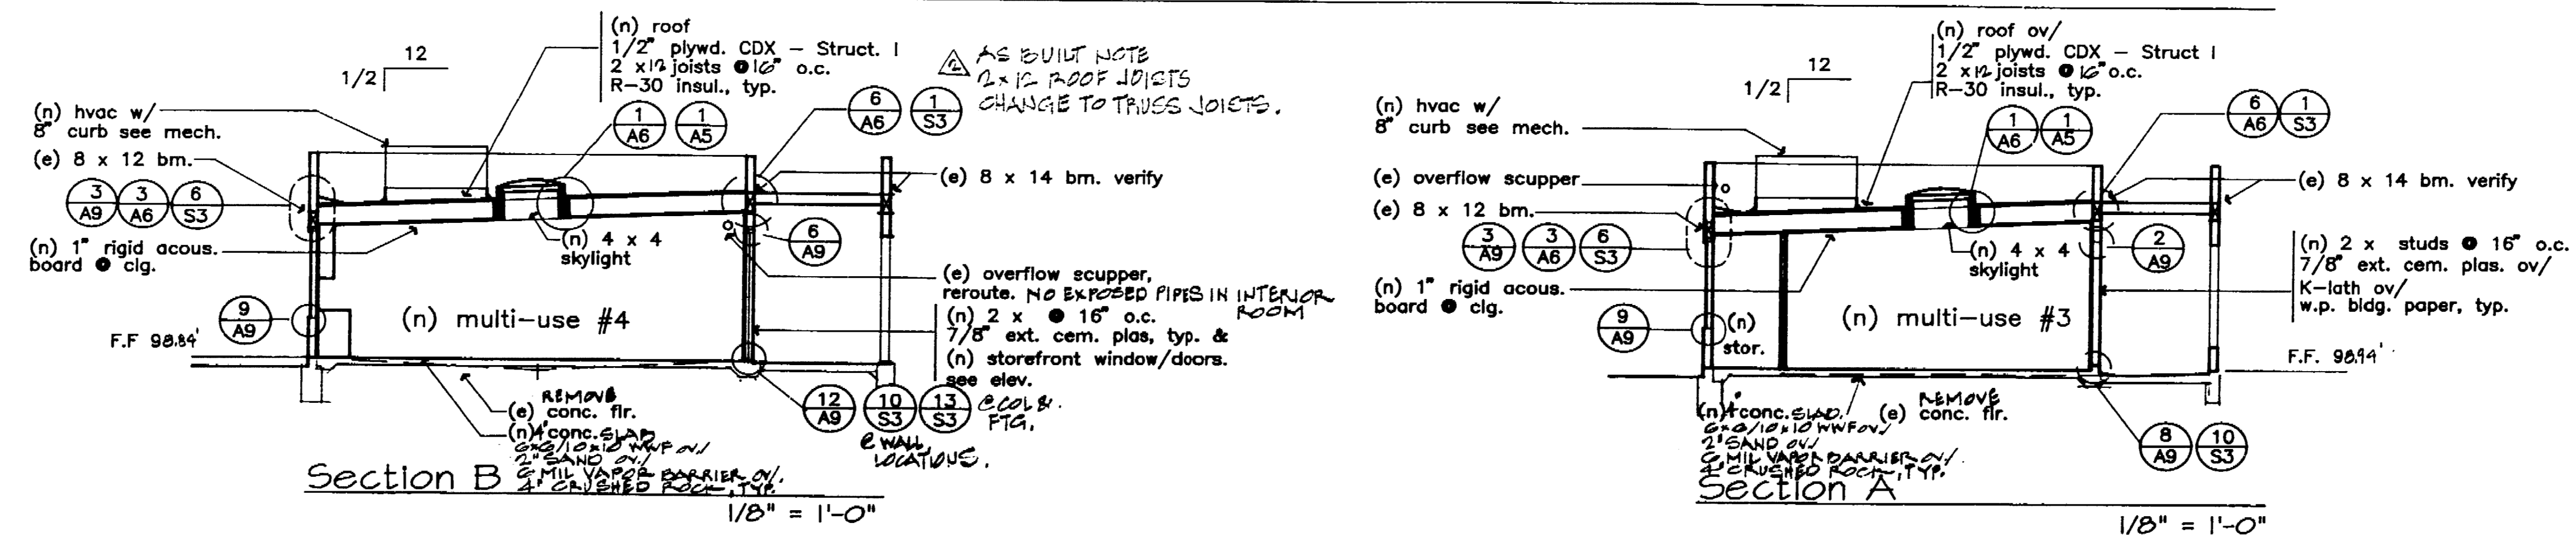 (n) roof
1/2" plywd. CDX – Struct. I
2 x12 joists @ 16" o.c.
R-30 insul., typ.
12
1/2
2
AS BUILT NOTE
2x12 ROOF JOISTS
CHANGE TO TRUSS JOISTS.
(n) hvac w/
8" curb see mech.
(e) 8 x 12 bm.
3
A9
3
A6
6
S3
(n) 1" rigid acous.
board @ clg.
1
A6
1
A5
6
A6
1
S3
(e) 8 x 14 bm. verify
(n) 4 x 4
skylight
6
A9
(e) overflow scupper,
reroute. NO EXPOSED PIPES IN INTERIOR
ROOM
(n) 2 x @ 16" o.c.
7/8" ext. cem. plas, typ. &
(n) storefront window/doors.
see elev.
9
A9
(n) multi-use #4
F.F 98.84'
12
A9
10
S3
13
S3
@ COL &.
FTG.
@ WALL
LOCATIONS.
REMOVE
(e) conc. flr.
(n)4" conc. SLAB
6x6/10x10 WWF OV./
2" SAND OV./
6 MIL VAPOR BARRIER OV/.
4" CRUSHED ROCK, TYP.
Section B
1/8" = 1'-0"
(n) roof ov/
1/2" plywd. CDX – Struct I
2 x12 joists @ 16" o.c.
R-30 insul., typ.
12
1/2
(n) hvac w/
8" curb see mech.
(e) overflow scupper
(e) 8 x 12 bm.
3
A9
3
A6
6
S3
(n) 1" rigid acous.
board @ clg.
1
A6
1
A5
6
A6
1
S3
(e) 8 x 14 bm. verify
(n) 4 x 4
skylight
2
A9
(n) 2 x studs @ 16" o.c.
7/8" ext. cem. plas. ov/
K-lath ov/
w.p. bldg. paper, typ.
9
A9
(n)
stor.
(n) multi-use #3
F.F. 98.94'
REMOVE
(e) conc. flr.
(n)4" conc. SLAB.
6x6/10x10 WWF OV./
2" SAND OV./
6 MIL VAPOR BARRIER OV/.
4" CRUSHED ROCK, TYP.
8
A9
10
S3
Section A
1/8" = 1'-0"